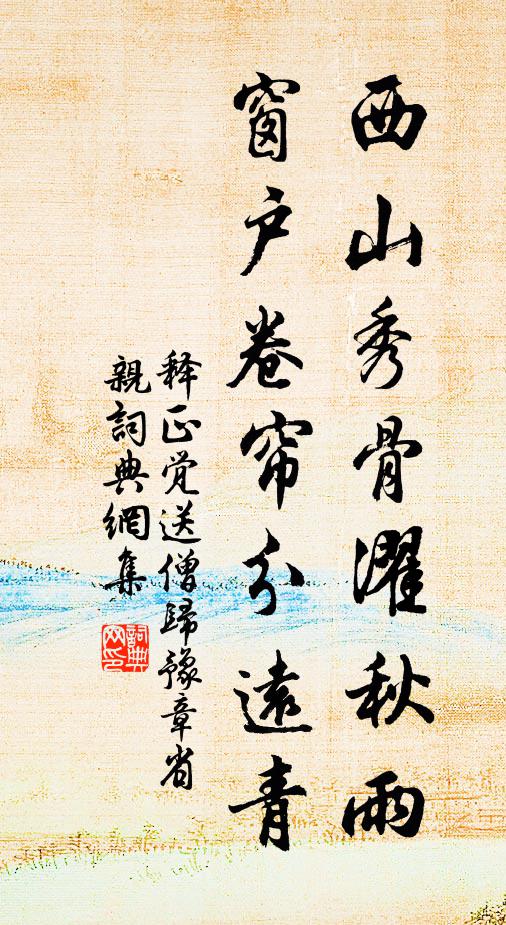 西山秀骨濯秋雨
窗户卷帘分遠青
释正觉送僧歸豫章省
親詞典網集
詞典
网印